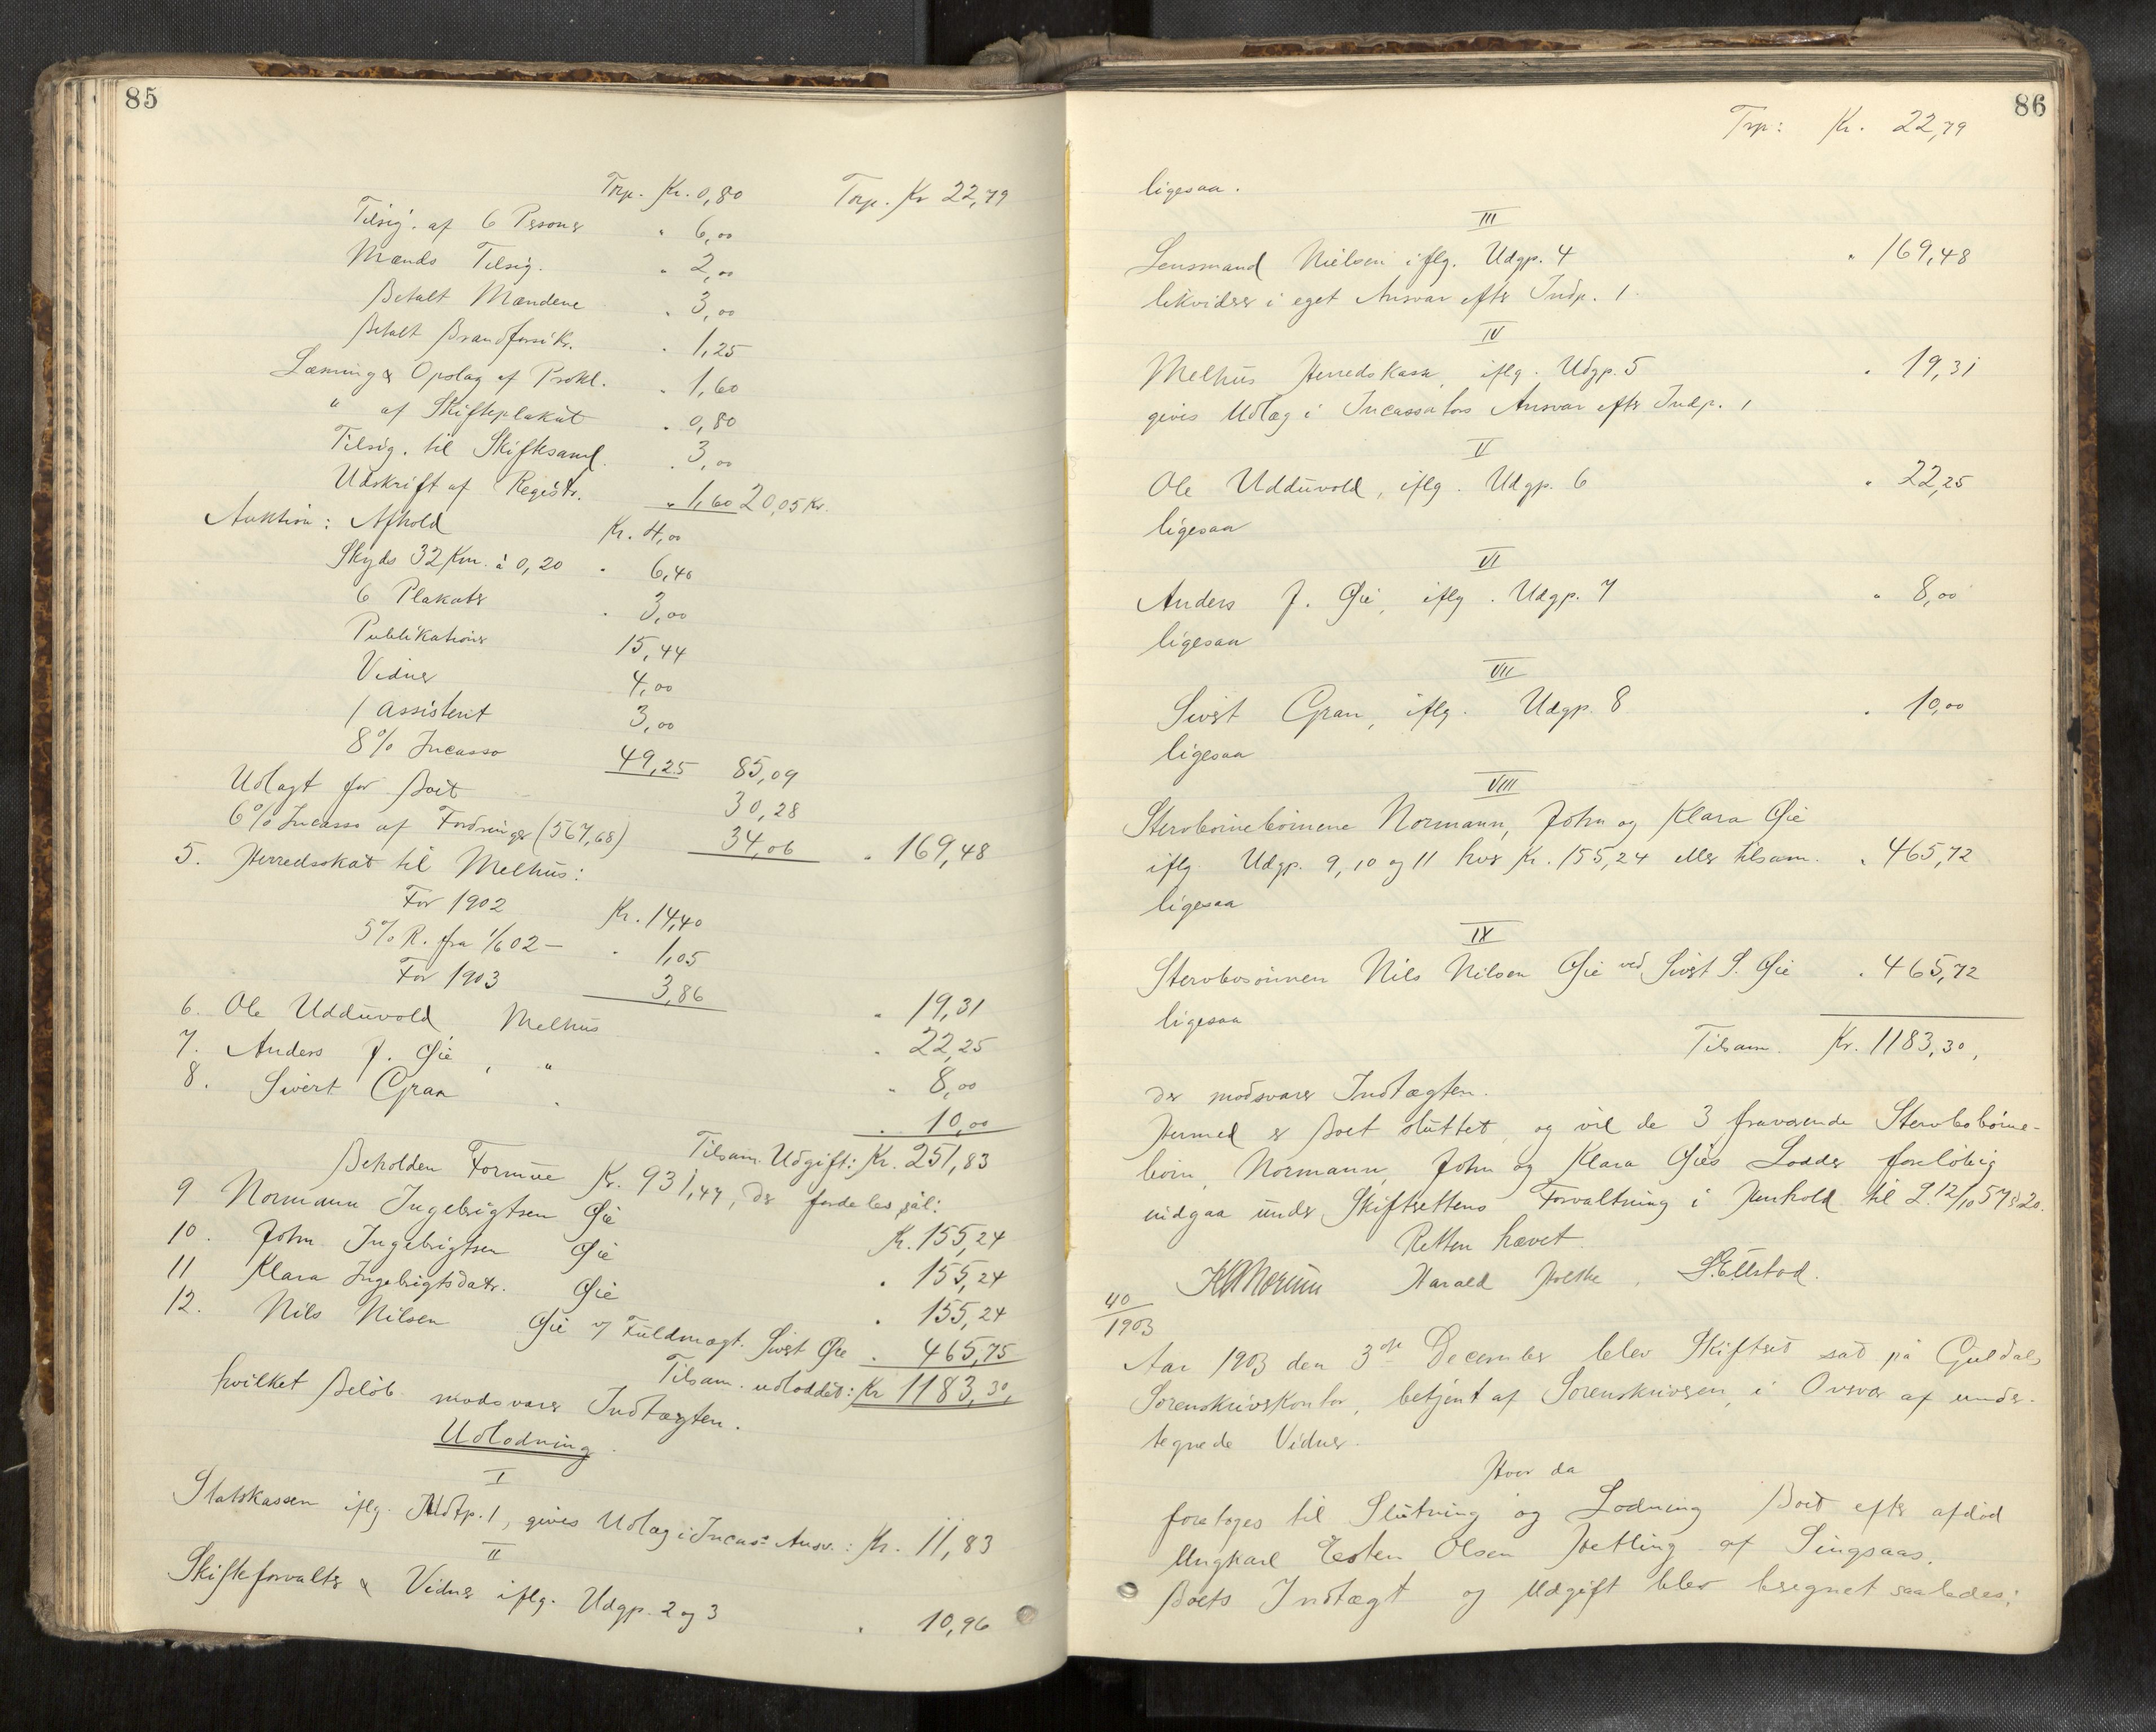 85
Trp. Kr. 0,80 Trp. Kr 22,79
Tilsig. af 6 Persons " 6,00
Mænds Tilsig. " 2,00
Betalt Mændene " 3,00
Betalt Brandforsikr. " 1,25
Læsning & Opslag af Prokl. " 1,60
" af Skifteplakat " 0,80
Tilsig. til Skiftesaml. " 3,00
Udskrift af Registr. " 1,60 20,05 Kr.
Auktion: Afhold Kr. 4,00
Skyds 32 Km. à 0,20 " 6,40
6 Plakater " 3,00
Publikations 15,44
Vidner 4,00
1 Assistent 3,00
8% Incasso 49,25 85,09
Udlagt for Boet 30,28
6% Incasso af Fordringer (567,68) 34,06 " 169,48
5. Herredsskat til Melhus:
For 1902 Kr. 14,40
5% R. fra 1/6 02 — " 1,05
For 1903 3,86 " 19,31
6. Ole Udduvold, Melhus " 22,25
7. Anders J. Øie, " " 8,00
8. Sivert Gran " " 10,00
Tilsam. Udgift: Kr. 251,83
Beholden Formue Kr. 931,47, der fordeles sål:
9 Normann Ingebrigtsen Øie Kr. 155,24
10. John Ingebrigtsen Øie " 155,24
11 Klara Ingebrigtsdatr. Øie " 155,24
12. Nils Nilsen Øie v/ Fuldmægt. Sivert Øie " 465,75
Tilsam. udloddet: Kr 1183,30,
hvilket Beløb modsvarer Indtægten.
Udlodning.
I
Statskassen iflg. Udgp. 1, gives Udlæg i Incas: Ansv.: Kr. 11,83
II
Skifteforvalter & Vidner iflg. Udgp. 2 og 3 " 10,96
86
Trp: Kr. 22,79
ligesaa.
III
Lensmand Nielsen iflg. Udgp. 4 " 169,48
likviderer i eget Ansvar efter Indp. 1.
IV
Melhus Herredskasse, iflg. Udgp. 5 " 19,31
gives Udlæg i Incassators Ansvar efter Indp. 1
V
Ole Udduvold, iflg. Udgp. 6 " 22,25
ligesaa
VI
Anders J. Øie, iflg. Udgp. 7 " 8,00
ligesaa
VII
Sivert Gran, iflg. Udgp. 8 " 10,00
ligesaa
VIII
Stervboinebörnene Normann, John og Klara Øie
iflg. Udgp. 9, 10 og 11 hver Kr. 155,24 eller tilsam. " 465,72
ligesaa
IX
Stervbosönnen Nils Nilsen Øie ved Sivert S. Øie " 465,72
ligesaa
Tilsam. Kr. 1183,30,
der modsvarer Indtægten.
Hermed er Boet sluttet, og vil de 3 fraværende Stervbobörne-
börn, Normann, John og Klara Øies Lodder foreløbig
indgaa under Skifterettens Forvaltning i Henhold til L. 12/10 57 § 20.
Retten hævet.
Harald S. Ellstad.
40/1903
Aar 1903 den 3die December blev Skifteret sat på Guldals
Sorenskriverkontor, betjent af Sorenskriveren, i Overvær af under-
tegnede Vidner.
Hvor da
foretoges til Slutning og Lodning Boet efter afdöd
Ungkarl Esten Olsen Hetling af Singsaas.
Boets Indtægt og Udgift blev beregnet saaledes: